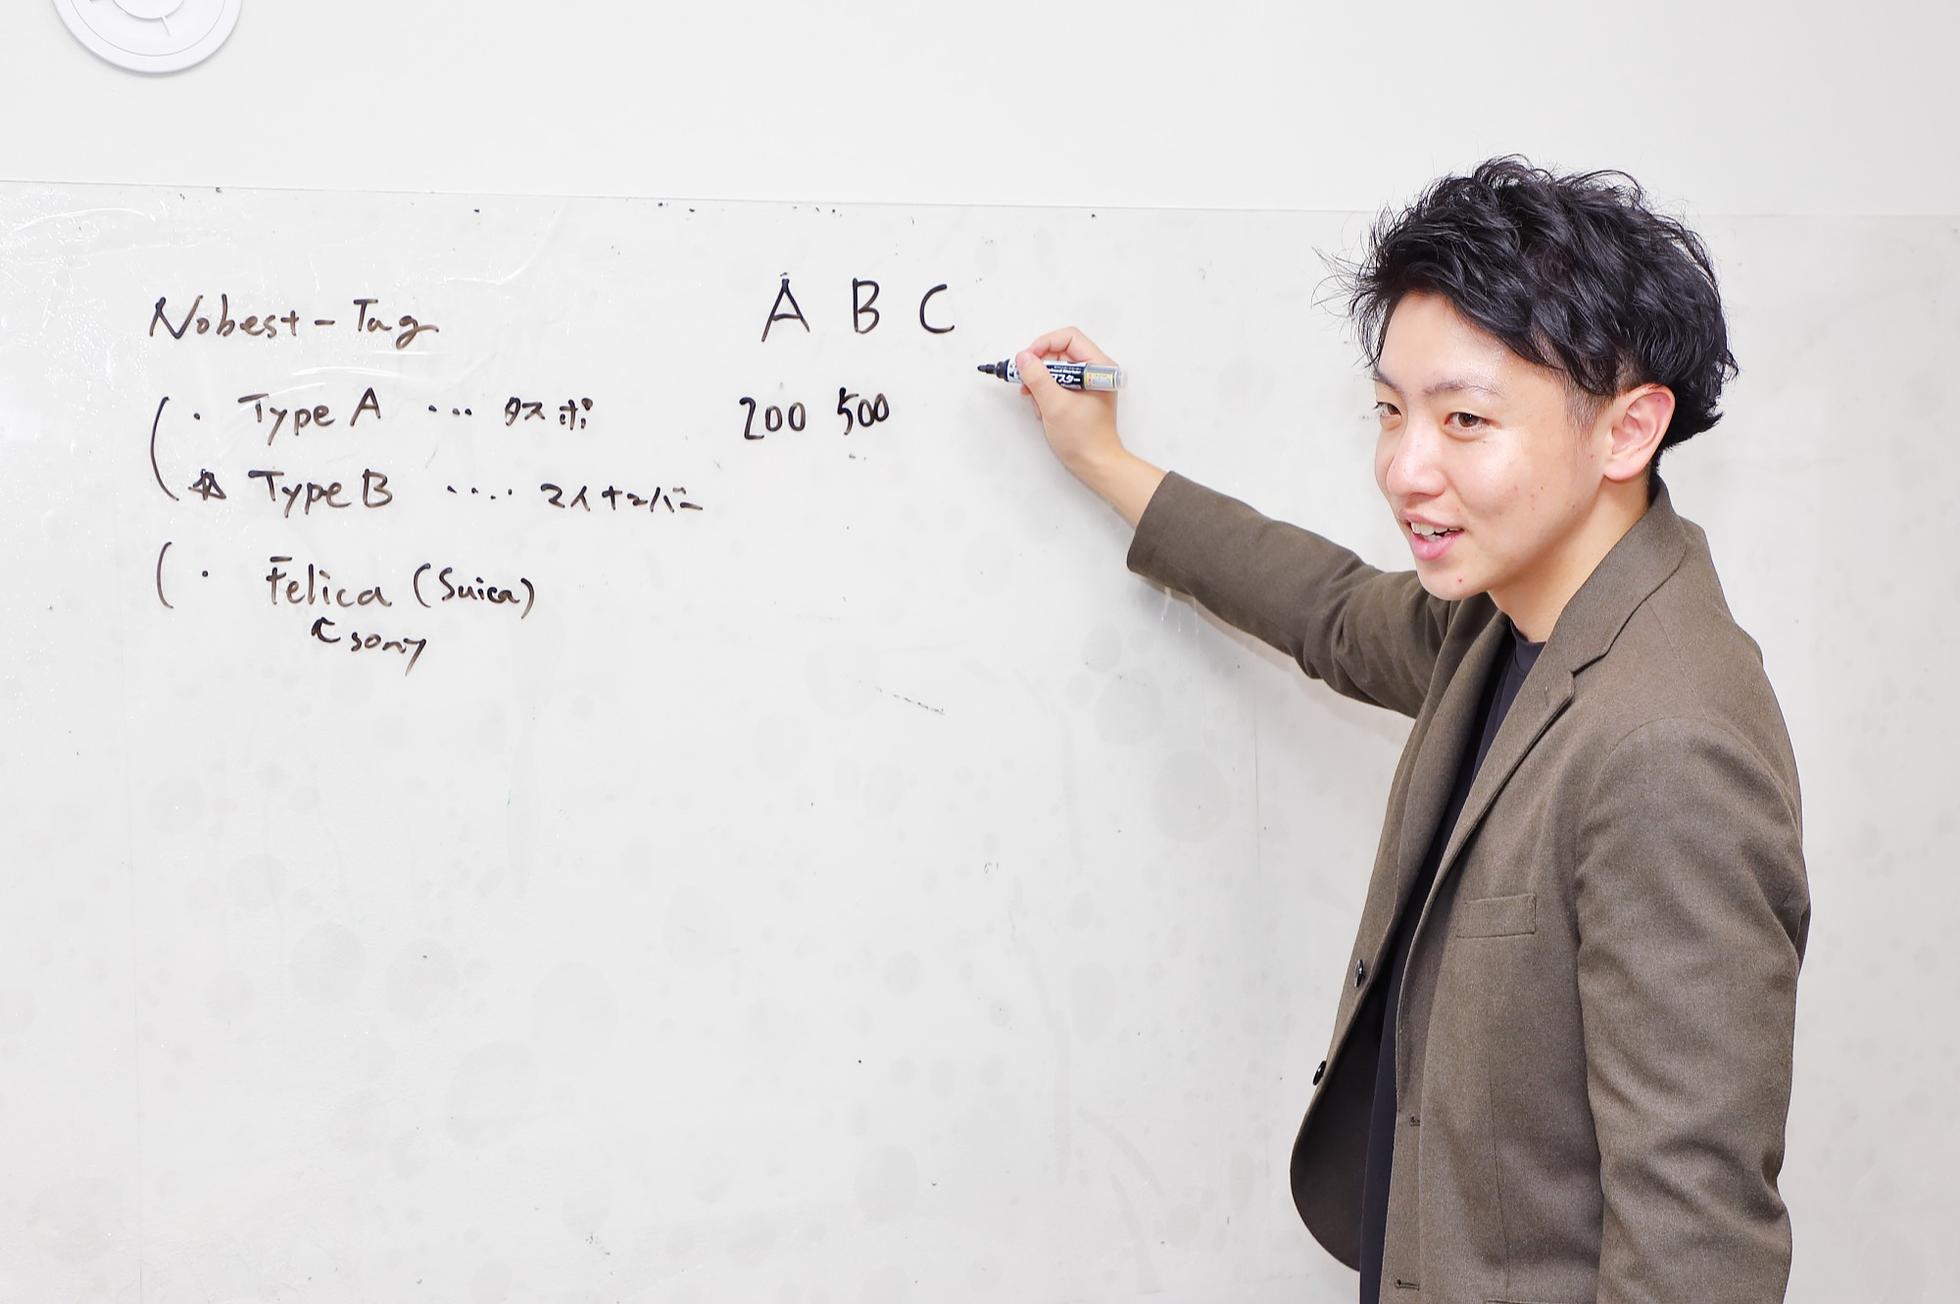 Nobest-Tag
・ Type A ... タスポ
☆ Type B .... マイナンバー
・ Felica (Suica)
sony
A B C
200 500
マスター